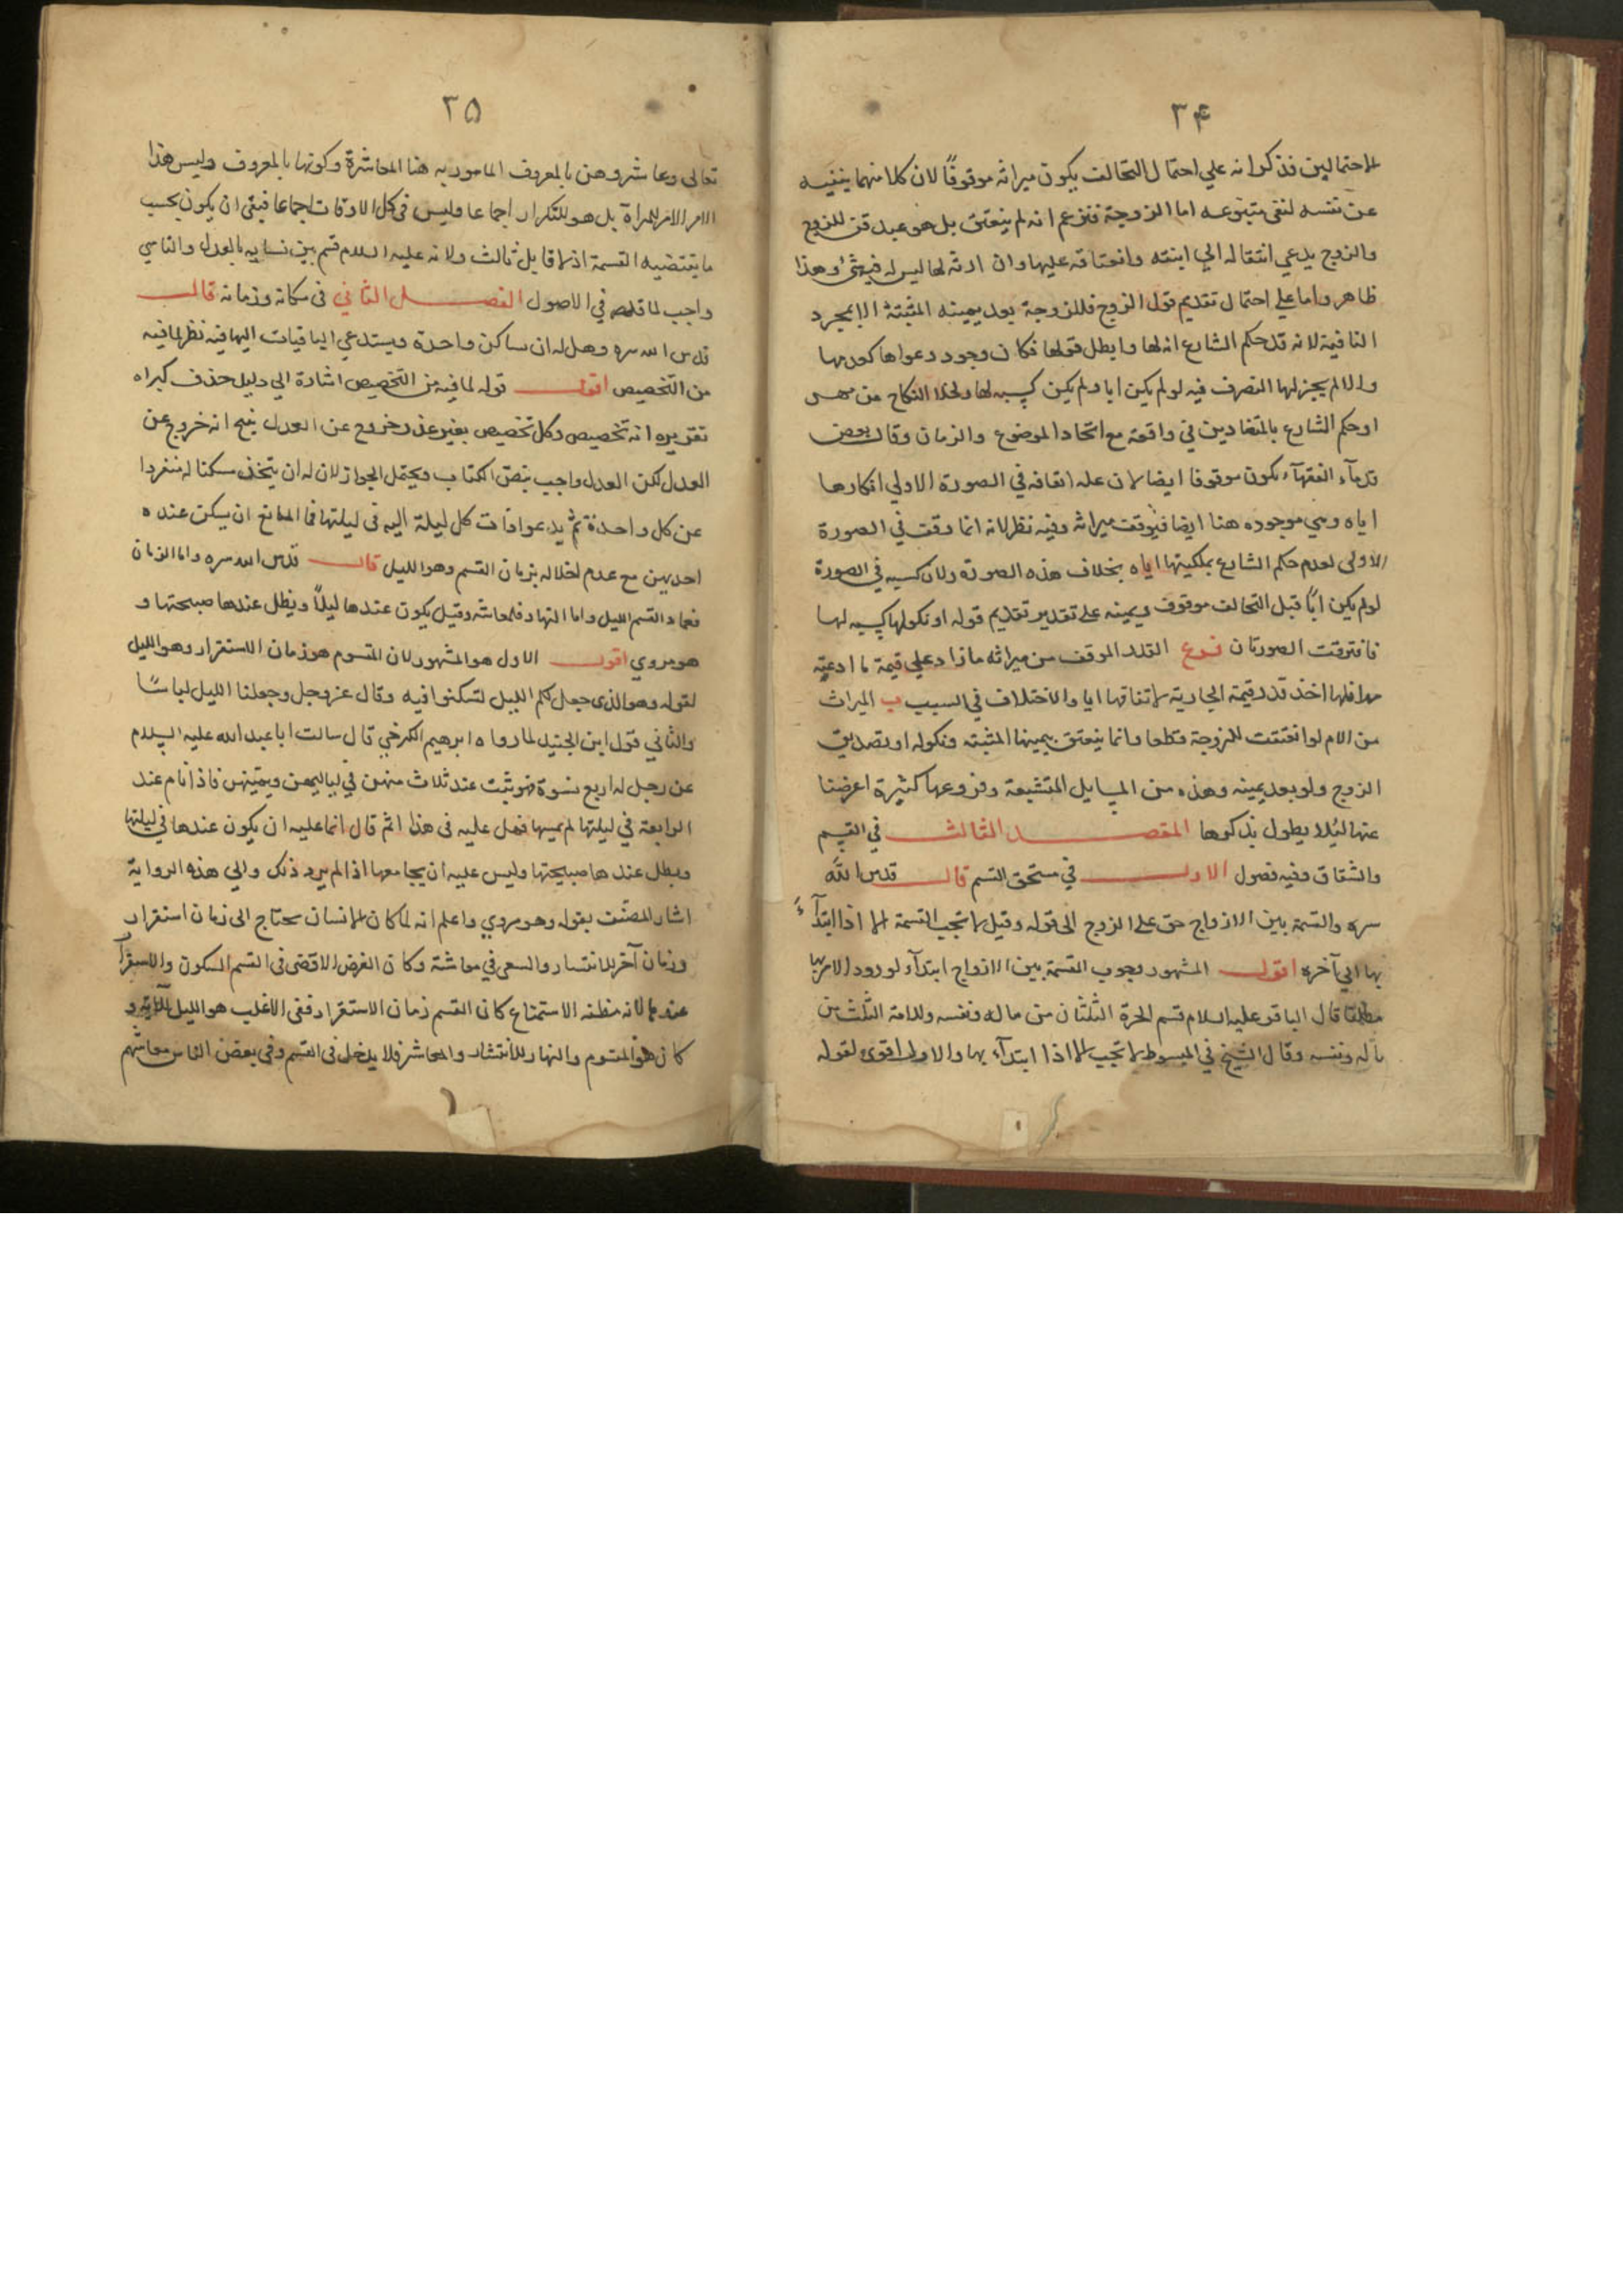 ۳۴
للاحتمالين فذكر انه علي احتمال التحالف يكون ميراثه موقوفًا لان كلا منهما ينفيه
عن نفسه لنفي متبوعه اما الزوجة فتزعم انه لم ينعتق بل هو عبد قن للزوج
والزوج يدعي انتقاله الي ابنته وانعتاقه عليها وان ارثه لها ليس له فيه شئ وهذا
ظاهر واما علي احتمال تقديم قول الزوج فللزوجة بعد يمينه المثبتة لا بمجرد
النافية لانه قد حكم الشارع انه لها وابطل قولها فكان وجود دعواها كعدمها
والا لم يجز لها التصرف فيه لو لم يكن ابا ولم يكن كسبه لها ولخلا النكاح من مهر
او حكم الشارع بالمتضادين في واقعة مع اتحاد الموضوع والزمان وقال بعض
قدمآء الفقهآء يكون موقوفا ايضا لان علة ايقافه في الصورة الاولي انكارها
اياه وهي موجوده هنا ايضا فيوقف ميراثه وفيه نظر لانه انما وقف في الصورة
الاولى لعدم حكم الشارع بملكيتها اياه بخلاف هذه الصورة ولان كسبه في الصورة
لو لم يكن ابًا قبل التحالف موقوف ويمينه علي تقدير تقديم قوله او نكولها كسبه لها
فافترقت الصورتان فرع القدر الموقف من ميراثه ما زاد علي قيمة ما ادعته
مهرا فلها اخذ قدر قيمة الجارية لاتفاقها ايا والاختلاف في السبب ب الميراث
من الام لو انعتقت للزوجة قطعا وانما ينعتق بيمينها المثبته ونكوله او تصديق
الزوج ولو بعد يمينه وهذه من المسايل المتشبعة وفروعها كثيرة اعرضنا
عنها لئلا يطول بذكرها المقصد الثالث في القسم
والشقاق وفيه فصول الاول في مستحق القسم قال قدس الله
سره والقسمة بين الازواج حق علي الزوج الي قوله وقيل لا تجب القسمة الا اذا ابتدآء
بها الي آخره اقول المشهور وجوب القسمة بين الازواج ابتدآء لورود الامر بها
مطلقا قال الباقر عليه السلام قسم للحرة الثلثان من ماله ونفسه وللامة الثلث من
ماله ونفسه وقال الشيخ في المبسوط لا تجب الا اذا ابتدآء بها والاول اقوى لقوله
۳۵
تعالى وعاشروهن بالمعروف المامور به هنا المعاشرة وكونها بالمعروف وليس هذا
الامر للمرة بل هو للتكرار اجماعا وليس في كل الاوقات اجماعا فبقي ان يكون بحسب
ما يقتضيه القسمة اذ لا قايل ثالث ولانه عليه السلام قسم بين نسايه بالعدل والتاسي
واجب لما تقدم في الاصول الفصل الثاني في مكانه وزمانه قال
قدس الله سره وهل له ان يساكن واحدة ويستدعي الباقيات اليها فيه نظر لما فيه
من التخصيص اقول قوله لما فيه من التخصيص اشارة الي دليل حذف كبراه
تقريره انه تخصيص وكل تخصيص بغير عذر خروج عن العدل ينتج انه خروج عن
العدل لكن العدل واجب بنص الكتاب ويحتمل الجواز لان له ان يتخذ مسكنا له منفردا
عن كل واحدة ثم يدعو اذا ت كل ليلة اليه في ليلتها فما المانع ان يسكن عنده
احديهن مع عدم اخلاله بزمان القسم وهو الليل قال قدس الله سره واما الزمان
فعماد القسم الليل واما النهار فلمعاشه وقيل يكون عندها ليلًا ويظل عندها صبيحتها و
هو مروي اقول الاول هو المشهور لان المقسوم هو زمان الاستقرار وهو الليل
لقوله وهو الذي جعل لكم الليل لتسكنوا فيه وقال عز وجل وجعلنا الليل لباسًا
والثاني قول ابن الجنيد لما رواه ابرهيم الكرخي قال سالت ابا عبد الله عليه السلام
عن رجل له اربع نسوة فهو يثبت عند ثلاث منهن في لياليهن ويمسهن فاذا نام عند
الرابعة في ليلتها لم يمسها فهل عليه في هذا اثم قال انما عليه ان يكون عندها في ليلتها
ويظل عندها صبيحتها وليس عليه ان يجامعها اذا لم يرد ذلك والي هذه الرواية
اشار المصنف بقوله وهو مروي واعلم انه لما كان للانسان يحتاج الى زمان استقرار
وزمان آخر للانتشار والسعي في معاشه وكان الغرض الاقصى في القسم السكون والاستقرار
عندها لانه مظنه الاستمتاع كان القسم زمان الاستقرار ففي الاغلب هو الليل
كان هو المقسوم والنهار للانتشار والمعاش فلا يدخل في القسم وفي بعض الناس معاشهم